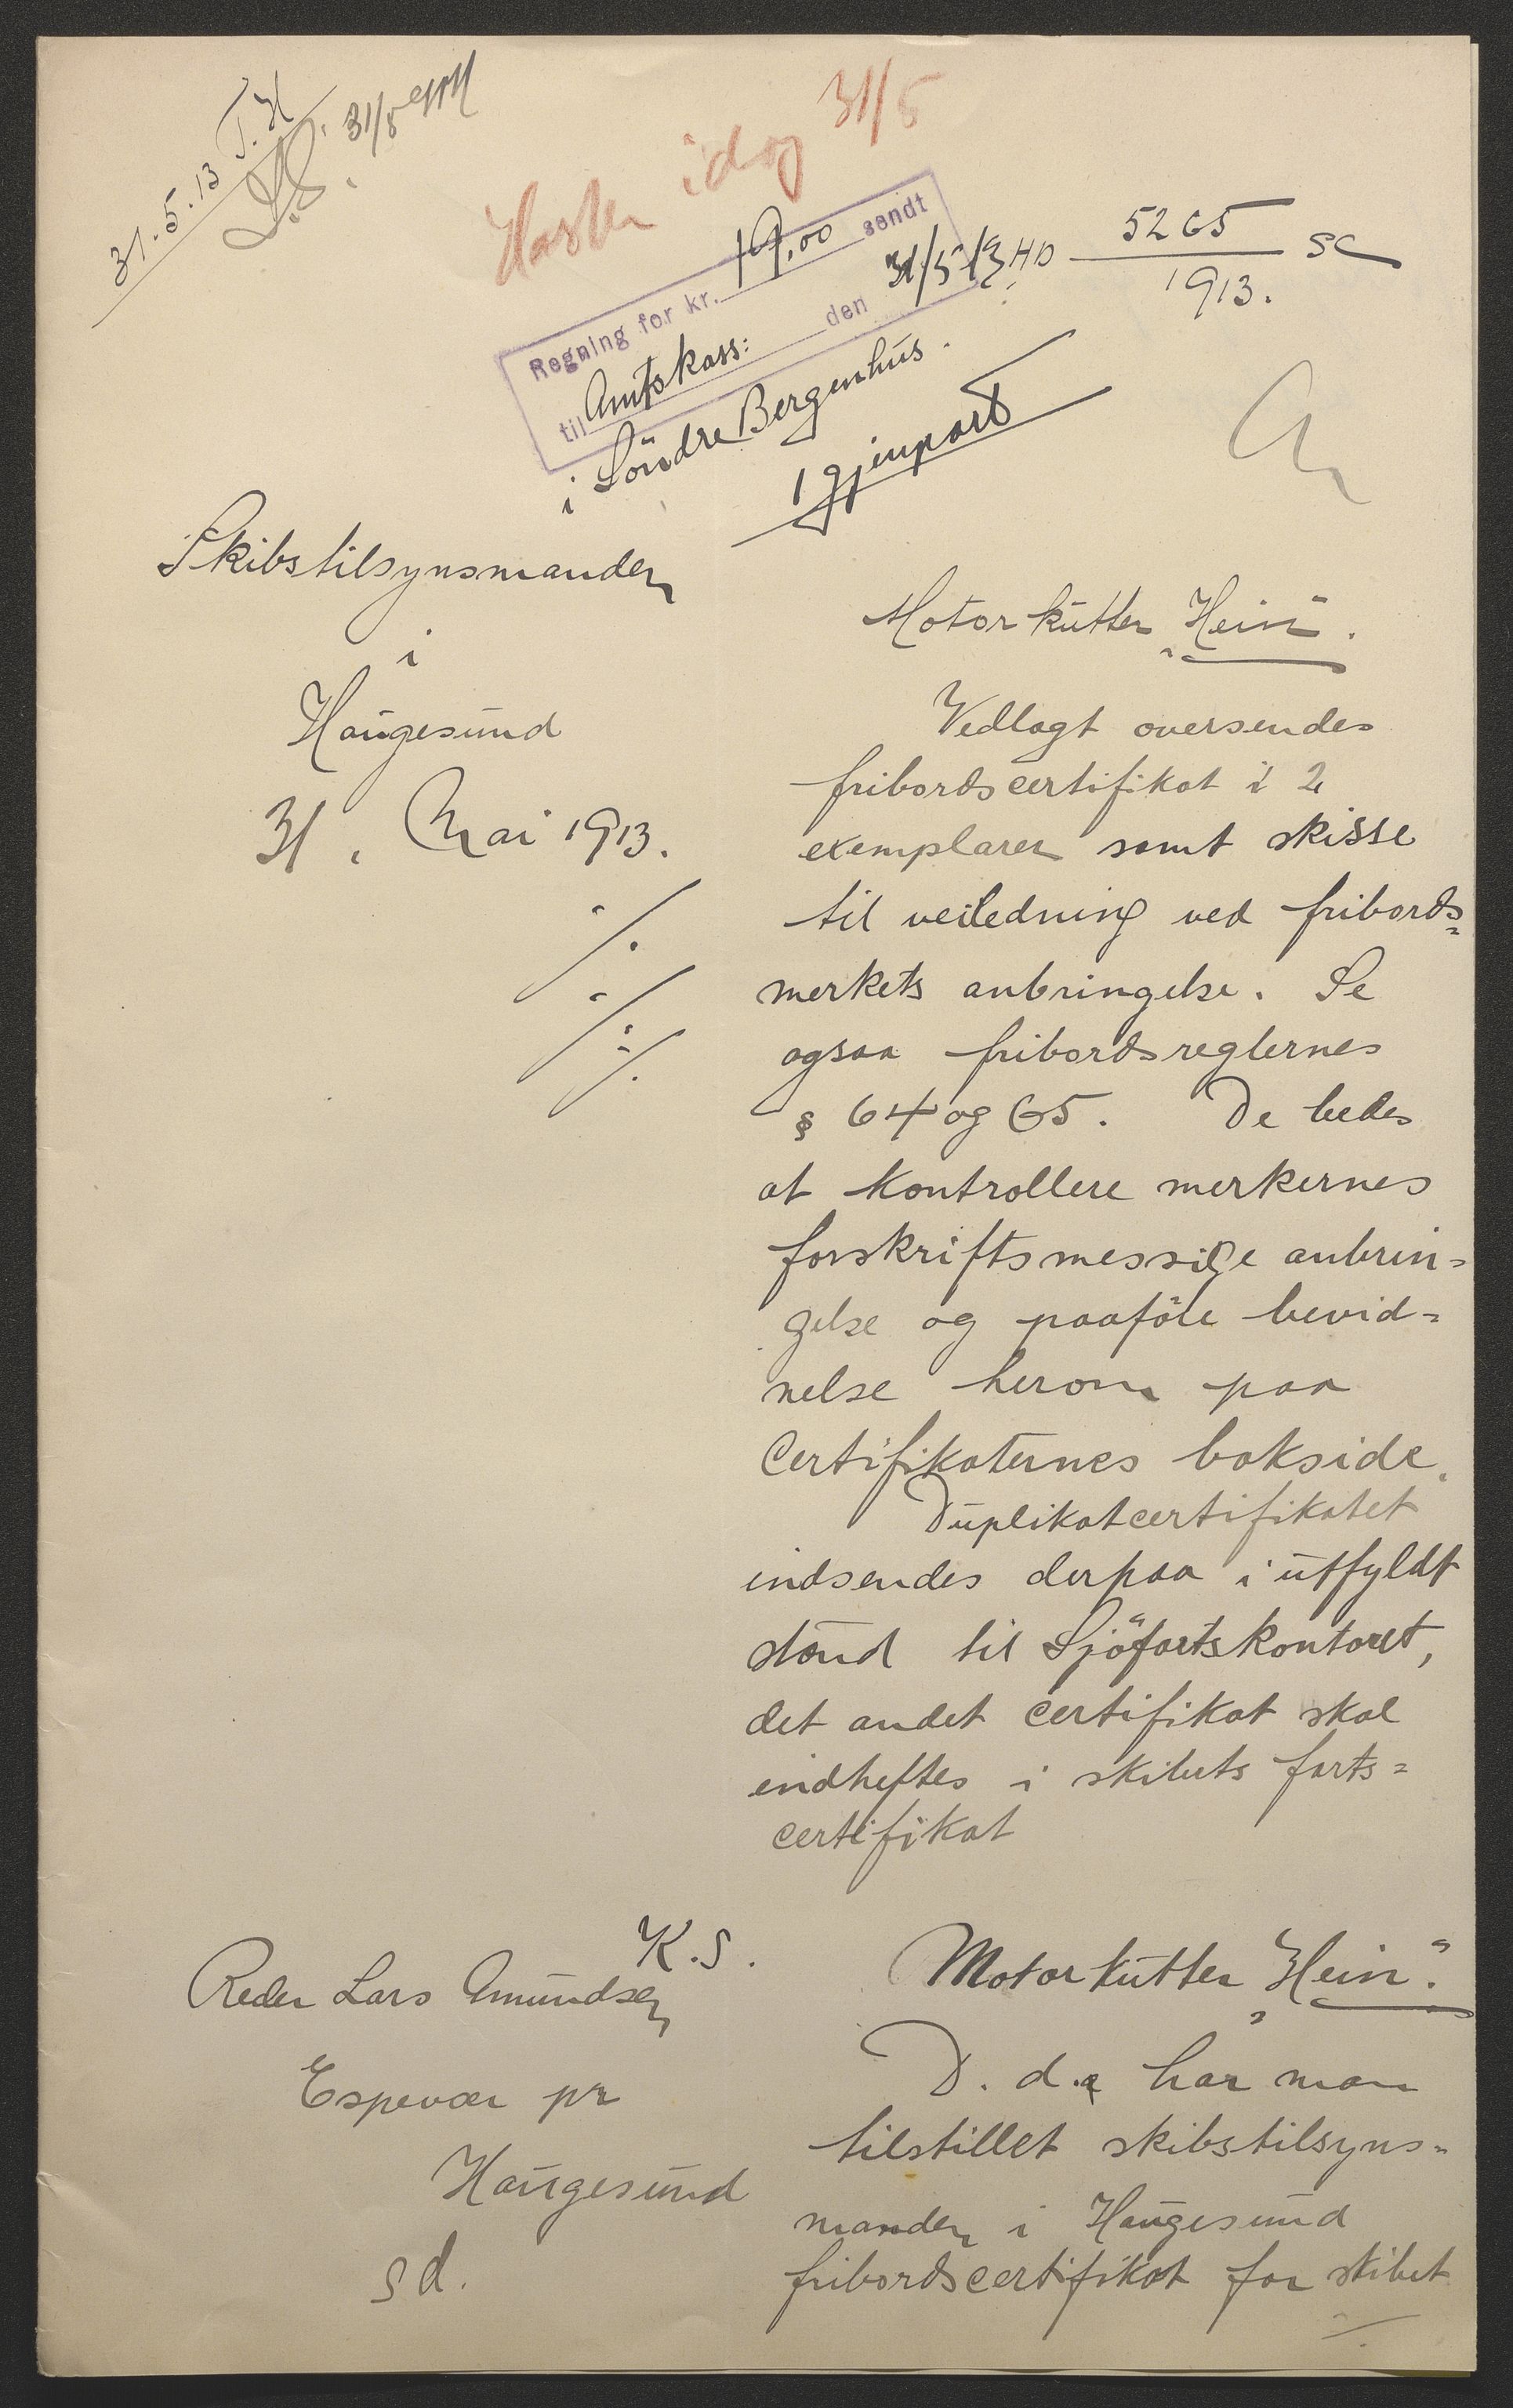 31.5.13 T.H
31/5
Haster idag 31/5
Regning for kr. 19,00 sendt
til Amtskass: den 31/5 13 HD
i Söndre Bergenhus.
1 gjenpart
5265 SC
1913.
Skibstilsynsmanden
i
Haugesund
31. Mai 1913.
Motorkutter „Hein".
Vedlagt oversendes
fribordscertifikat i 2
exemplarer samt skisse
til veiledning ved fribords=
merkets anbringelse. Se
ogsaa fribordsreglernes
§ 64 og 65. De bedes
at kontrollere merkernes
forskriftsmessige anbrin=
gelse og paaföre bevid=
nelse herom paa
Certifikaternes bakside.
Duplikatcertifikatet
indsendes derpaa i utfyldt
stand til Sjöfartskontoret,
det andet certifikat skal
indheftes i skibets farts=
certifikat
K.S.
Reder Lars Amundsen
Espevær pr
Haugesund
s d.
Motorkutter „Hein".
D. d. har man
tilstillet skibstilsyns=
manden i Haugesund
fribordscertifikat for skibet